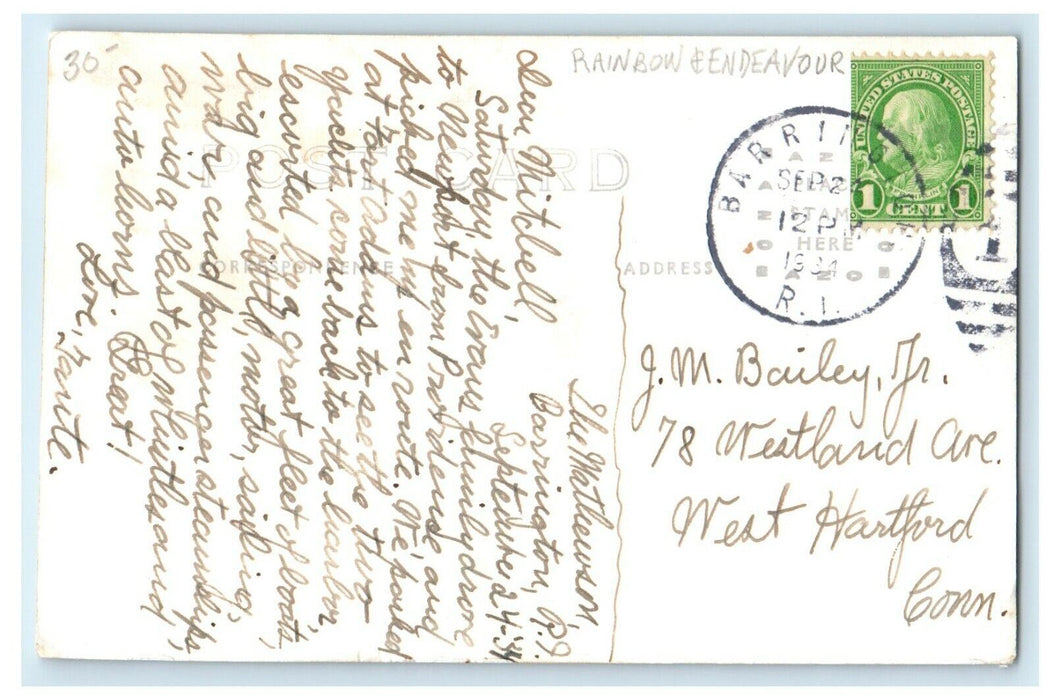 30
RAINBOW & ENDEAVOUR
UNITED STATES POSTAGE
1 CENT 1
BARRINGTON
SEP 24
12 PM
1934
R.I.
PLACE
STAMP
HERE
POST CARD
CORRESPONDENCE
ADDRESS
The Mathewson,
Barrington, R.I.
September 24-'34
Dear Mitchell,
Saturday the Evans family drove
to Newport from Providence and
picked me up en route. We parked
at Fort Adams to see the two
yachts come back to the harbor
escorted by a great fleet of boats,
big and little, motor, sailing,
war, and passenger steamships,
amid a blast of whistles and
auto horns. Great!
Love, Tante.
J. M. Bailey, Jr.
78 Westland Ave.
West Hartford
Conn.